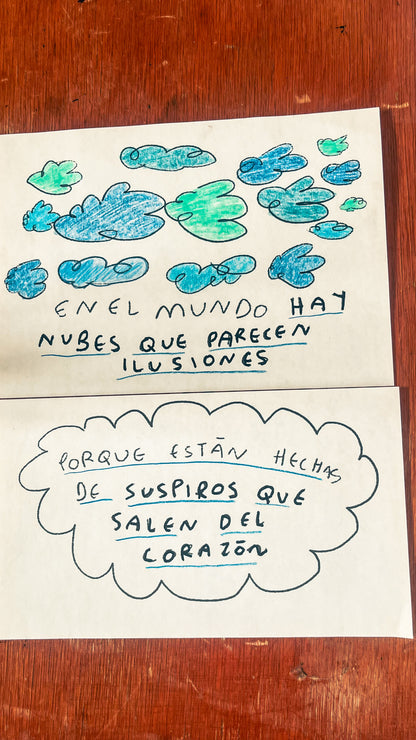 EN EL MUNDO HAY
NUBES QUE PARECEN
ILUSIONES
PORQUE ESTÁN HECHAS
DE SUSPIROS QUE
SALEN DEL
CORAZÓN